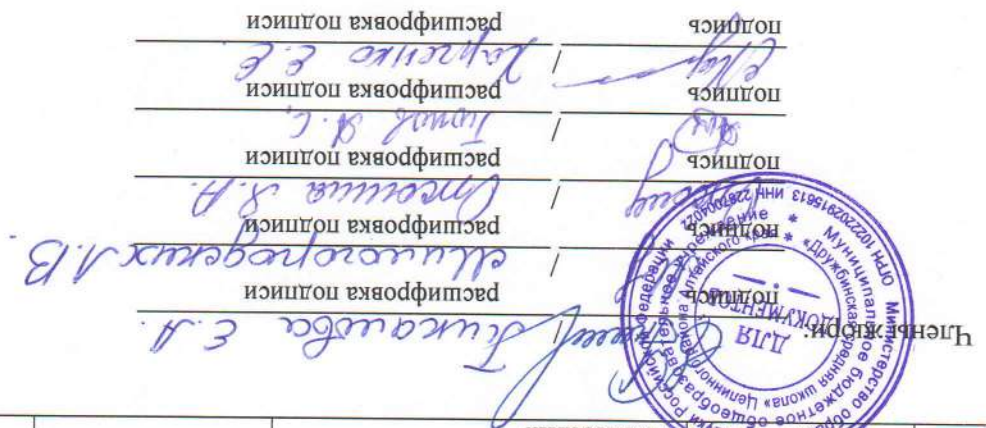 Члены жюри:
/ Пикалова Е.А.
подпись расшифровка подписи
/ Миногородских Л.В.
подпись расшифровка подписи
/
подпись расшифровка подписи
/ Титов А.С.
подпись расшифровка подписи
/ Харченко Е.Е.
подпись расшифровка подписи
ДЛЯ
ДОКУМЕНТОВ
Муниципальное бюджетное общеобразовательное учреждение
«Дружбинская средняя школа» Целинного района Алтайского края
ОГРН 1022202915613 ИНН 2287004022